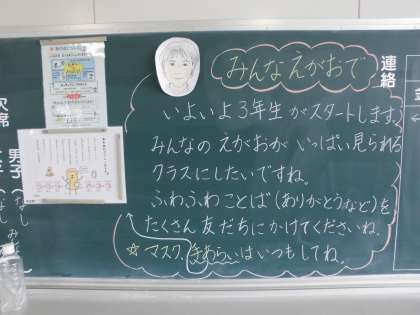 みんなえがおで
いよいよ3年生がスタートします。
みんなのえがおがいっぱい見られる
クラスにしたいですね。
ふわふわことば(ありがとうなど)を
たくさん友だちにかけてくださいね。
☆マスク、手あらいはいつもしてね。
連絡
金
欠席
男子(なし
女子(なし